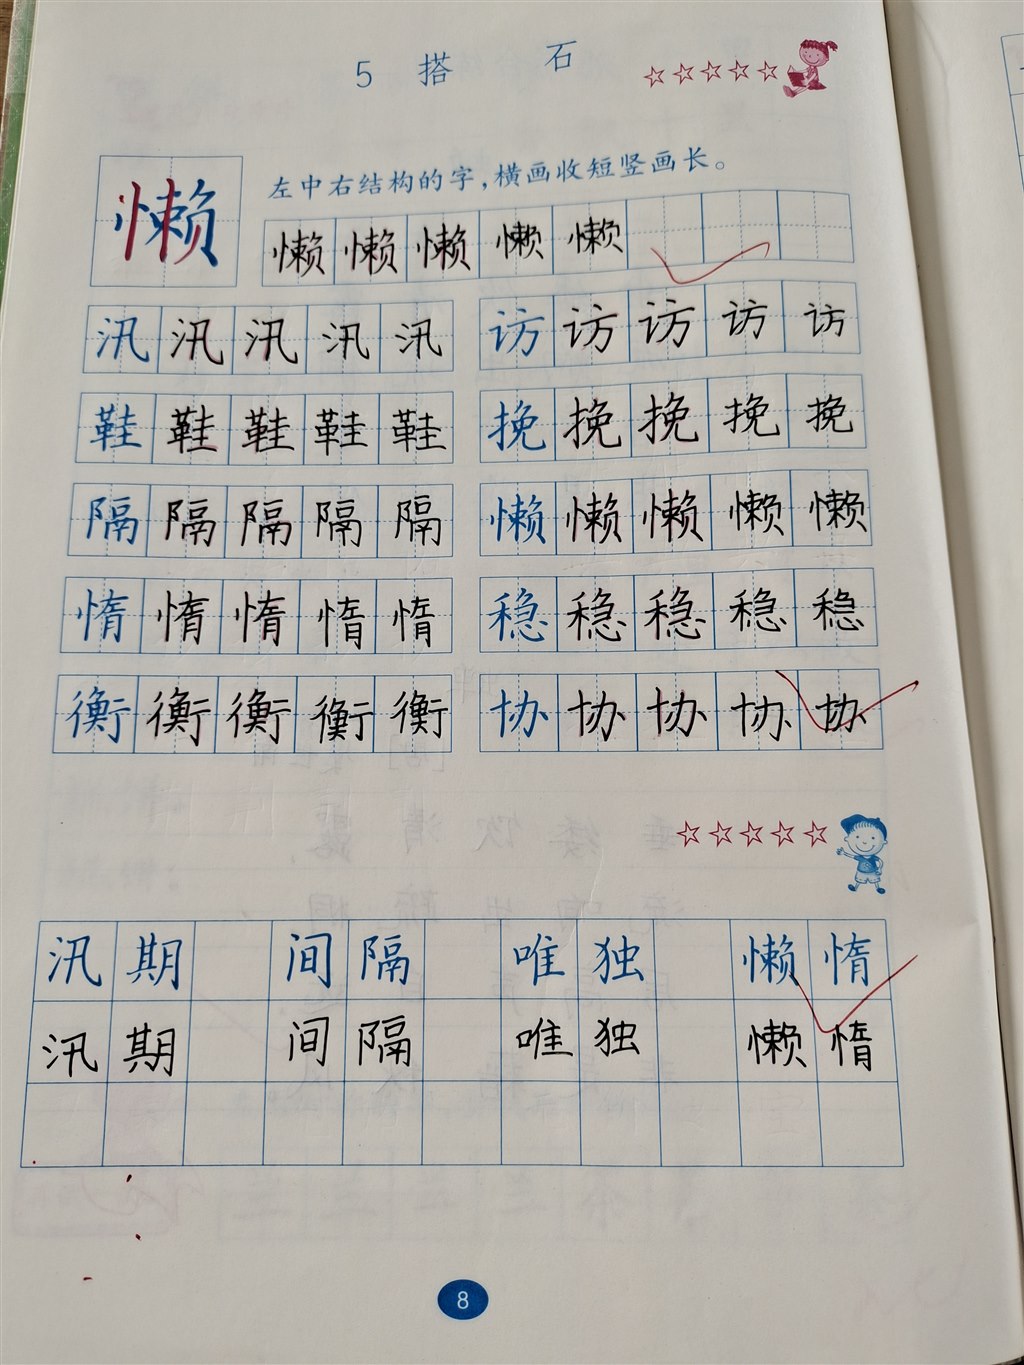 5 搭 石
懒 左中右结构的字，横画收短竖画长。
懒 懒 懒 懒 懒
汛 汛 汛 汛 汛 访 访 访 访 访
鞋 鞋 鞋 鞋 鞋 挽 挽 挽 挽 挽
隔 隔 隔 隔 隔 懒 懒 懒 懒 懒
惰 惰 惰 惰 惰 稳 稳 稳 稳 稳
衡 衡 衡 衡 衡 协 协 协 协 协
汛期 间隔 唯独 懒惰
汛期 间隔 唯独 懒惰
8